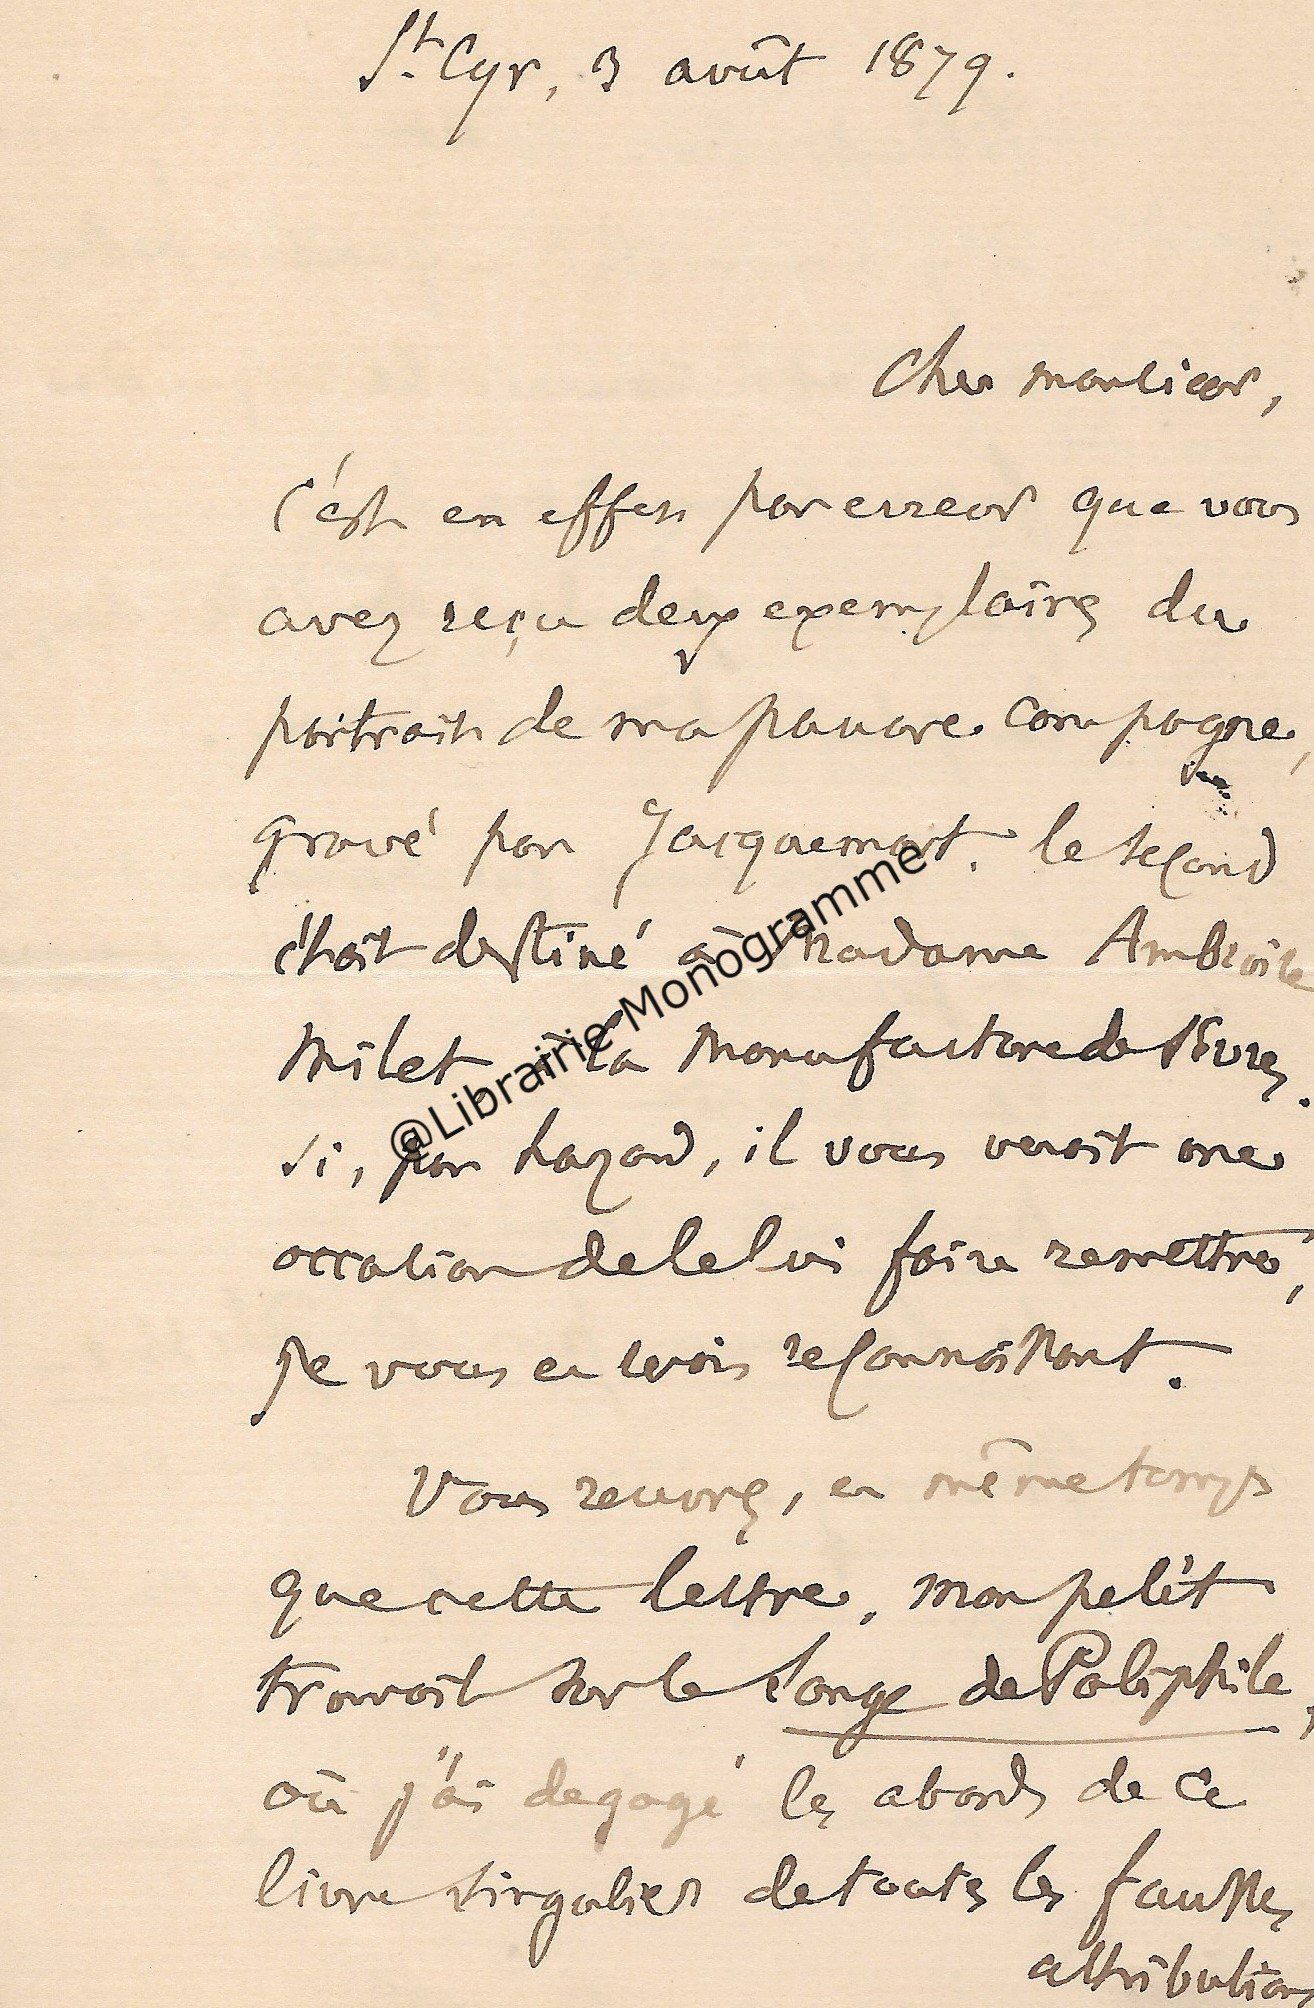 St. Cyr, 3 août 1879.
Cher monsieur,
C'est en effet par erreur que vous
avez reçu deux exemplaires du
portrait de ma pauvre compagne,
gravé par Jacquemart. le second
était destiné à Madame Ambroise
Milet, à la Manufacture de Sèvres.
@Librairie Monogramme
Si, par hazard, il vous venait une
occasion de le lui faire remettre,
je vous en serois reconnaissant.
Vous recevrez, en même temps
que cette lettre, mon petit
travail sur le Songe de Poliphile,
où j'ai dégagé les abords de ce
livre singulier de toutes les fausses
attributions